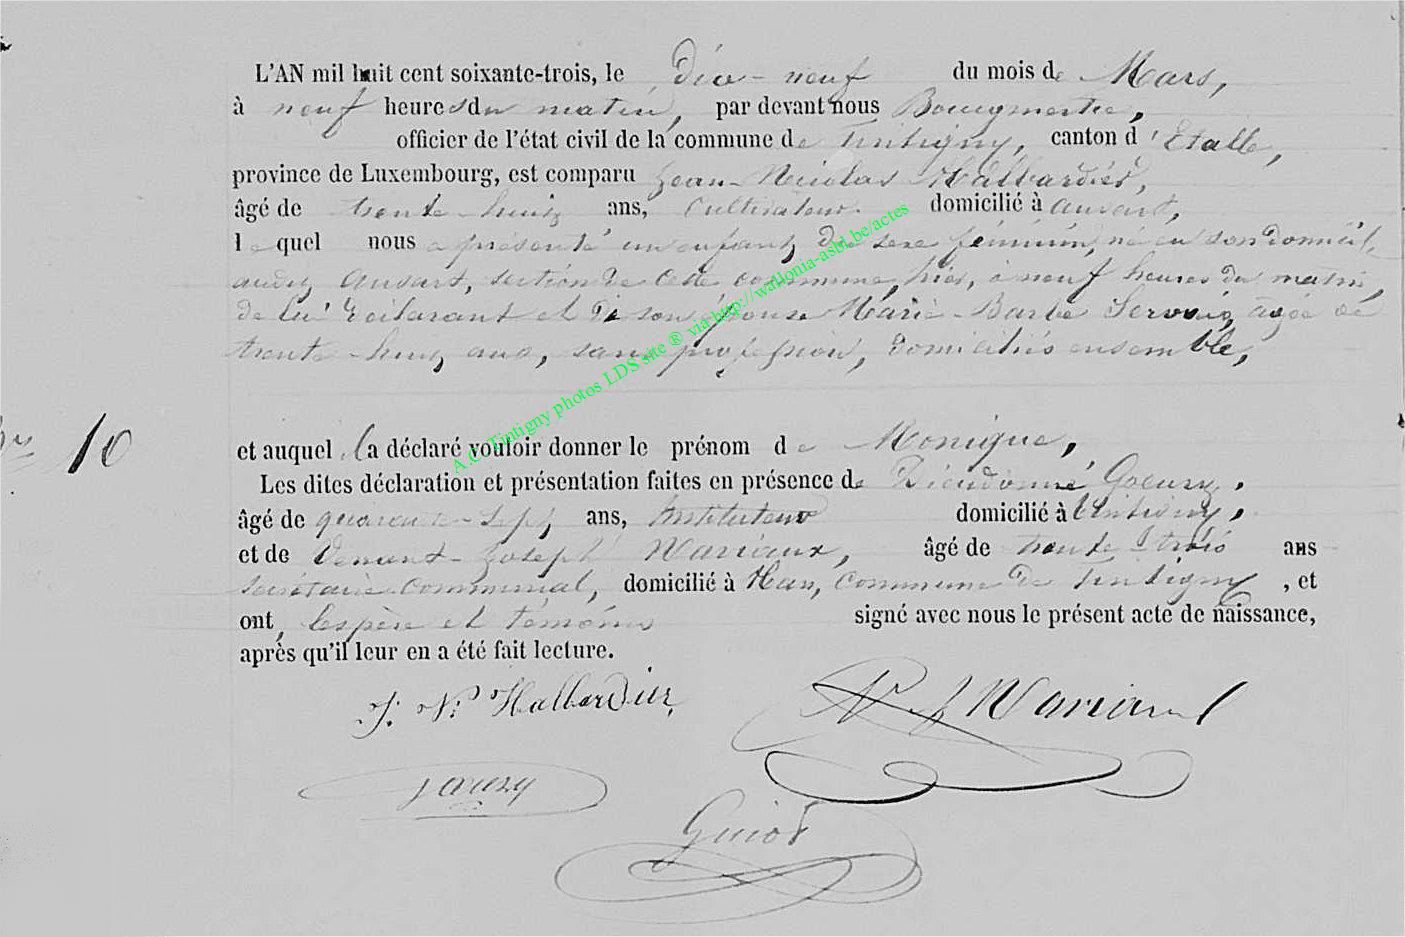 L'AN mil huit cent soixante-trois, le dix-neuf du mois de Mars,
à neuf heures du matin, par devant nous Bourgmestre,
officier de l'état civil de la commune de Tintigny, canton d'Etalle,
province de Luxembourg, est comparu Jean-Nicolas Halbardier,
âgé de trente-huit ans, cultivateur domicilié à ansart,
lequel nous a présenté un enfant du sexe féminin, né en son domicile
audit ansart, section de cette commune, hier, à neuf heures du matin,
de lui déclarant et de son épouse Marie-Barbe Servais, agée de
trente-huit ans, sans profession, domiciliés ensemble,
et auquel il a déclaré vouloir donner le prénom de Monique,
N° 10
Les dites déclaration et présentation faites en présence de Dieudonné
âgé de quarante-sept ans, Instituteur domicilié à Tintigny,
et de Joseph Wariaux, âgé de trente-trois ans
secrétaire communal, domicilié à Han, commune de Tintigny, et
ont, les père et témoins signé avec nous le présent acte de naissance,
après qu'il leur en a été fait lecture.
J. N. Halbardier
Wariaux
Guiot
A.C. Tintigny photos LDS site ® via http://wallonia-asbl.be/actes